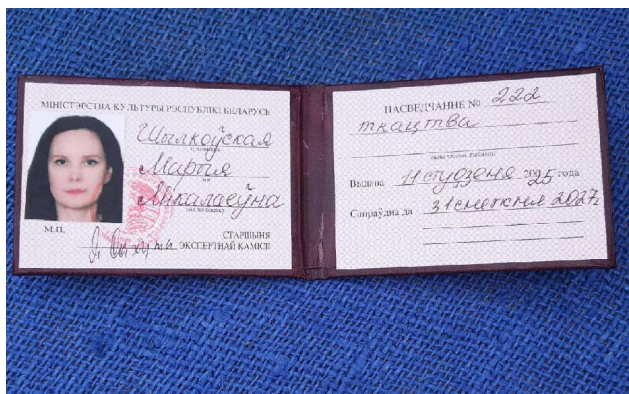 МІНІСТЭРСТВА КУЛЬТУРЫ РЭСПУБЛІКІ БЕЛАРУСЬ
Шылкоўская
Марыя
Мікалаеўна
М.П.
СТАРШЫНЯ
ЭКСПЕРТНАЙ КАМІСІІ
ПАСВЕДЧАННЕ № 222
ткацтва
Выдана 11 студзеня 2025 года
Сапраўдна да 31 снежня 2027г